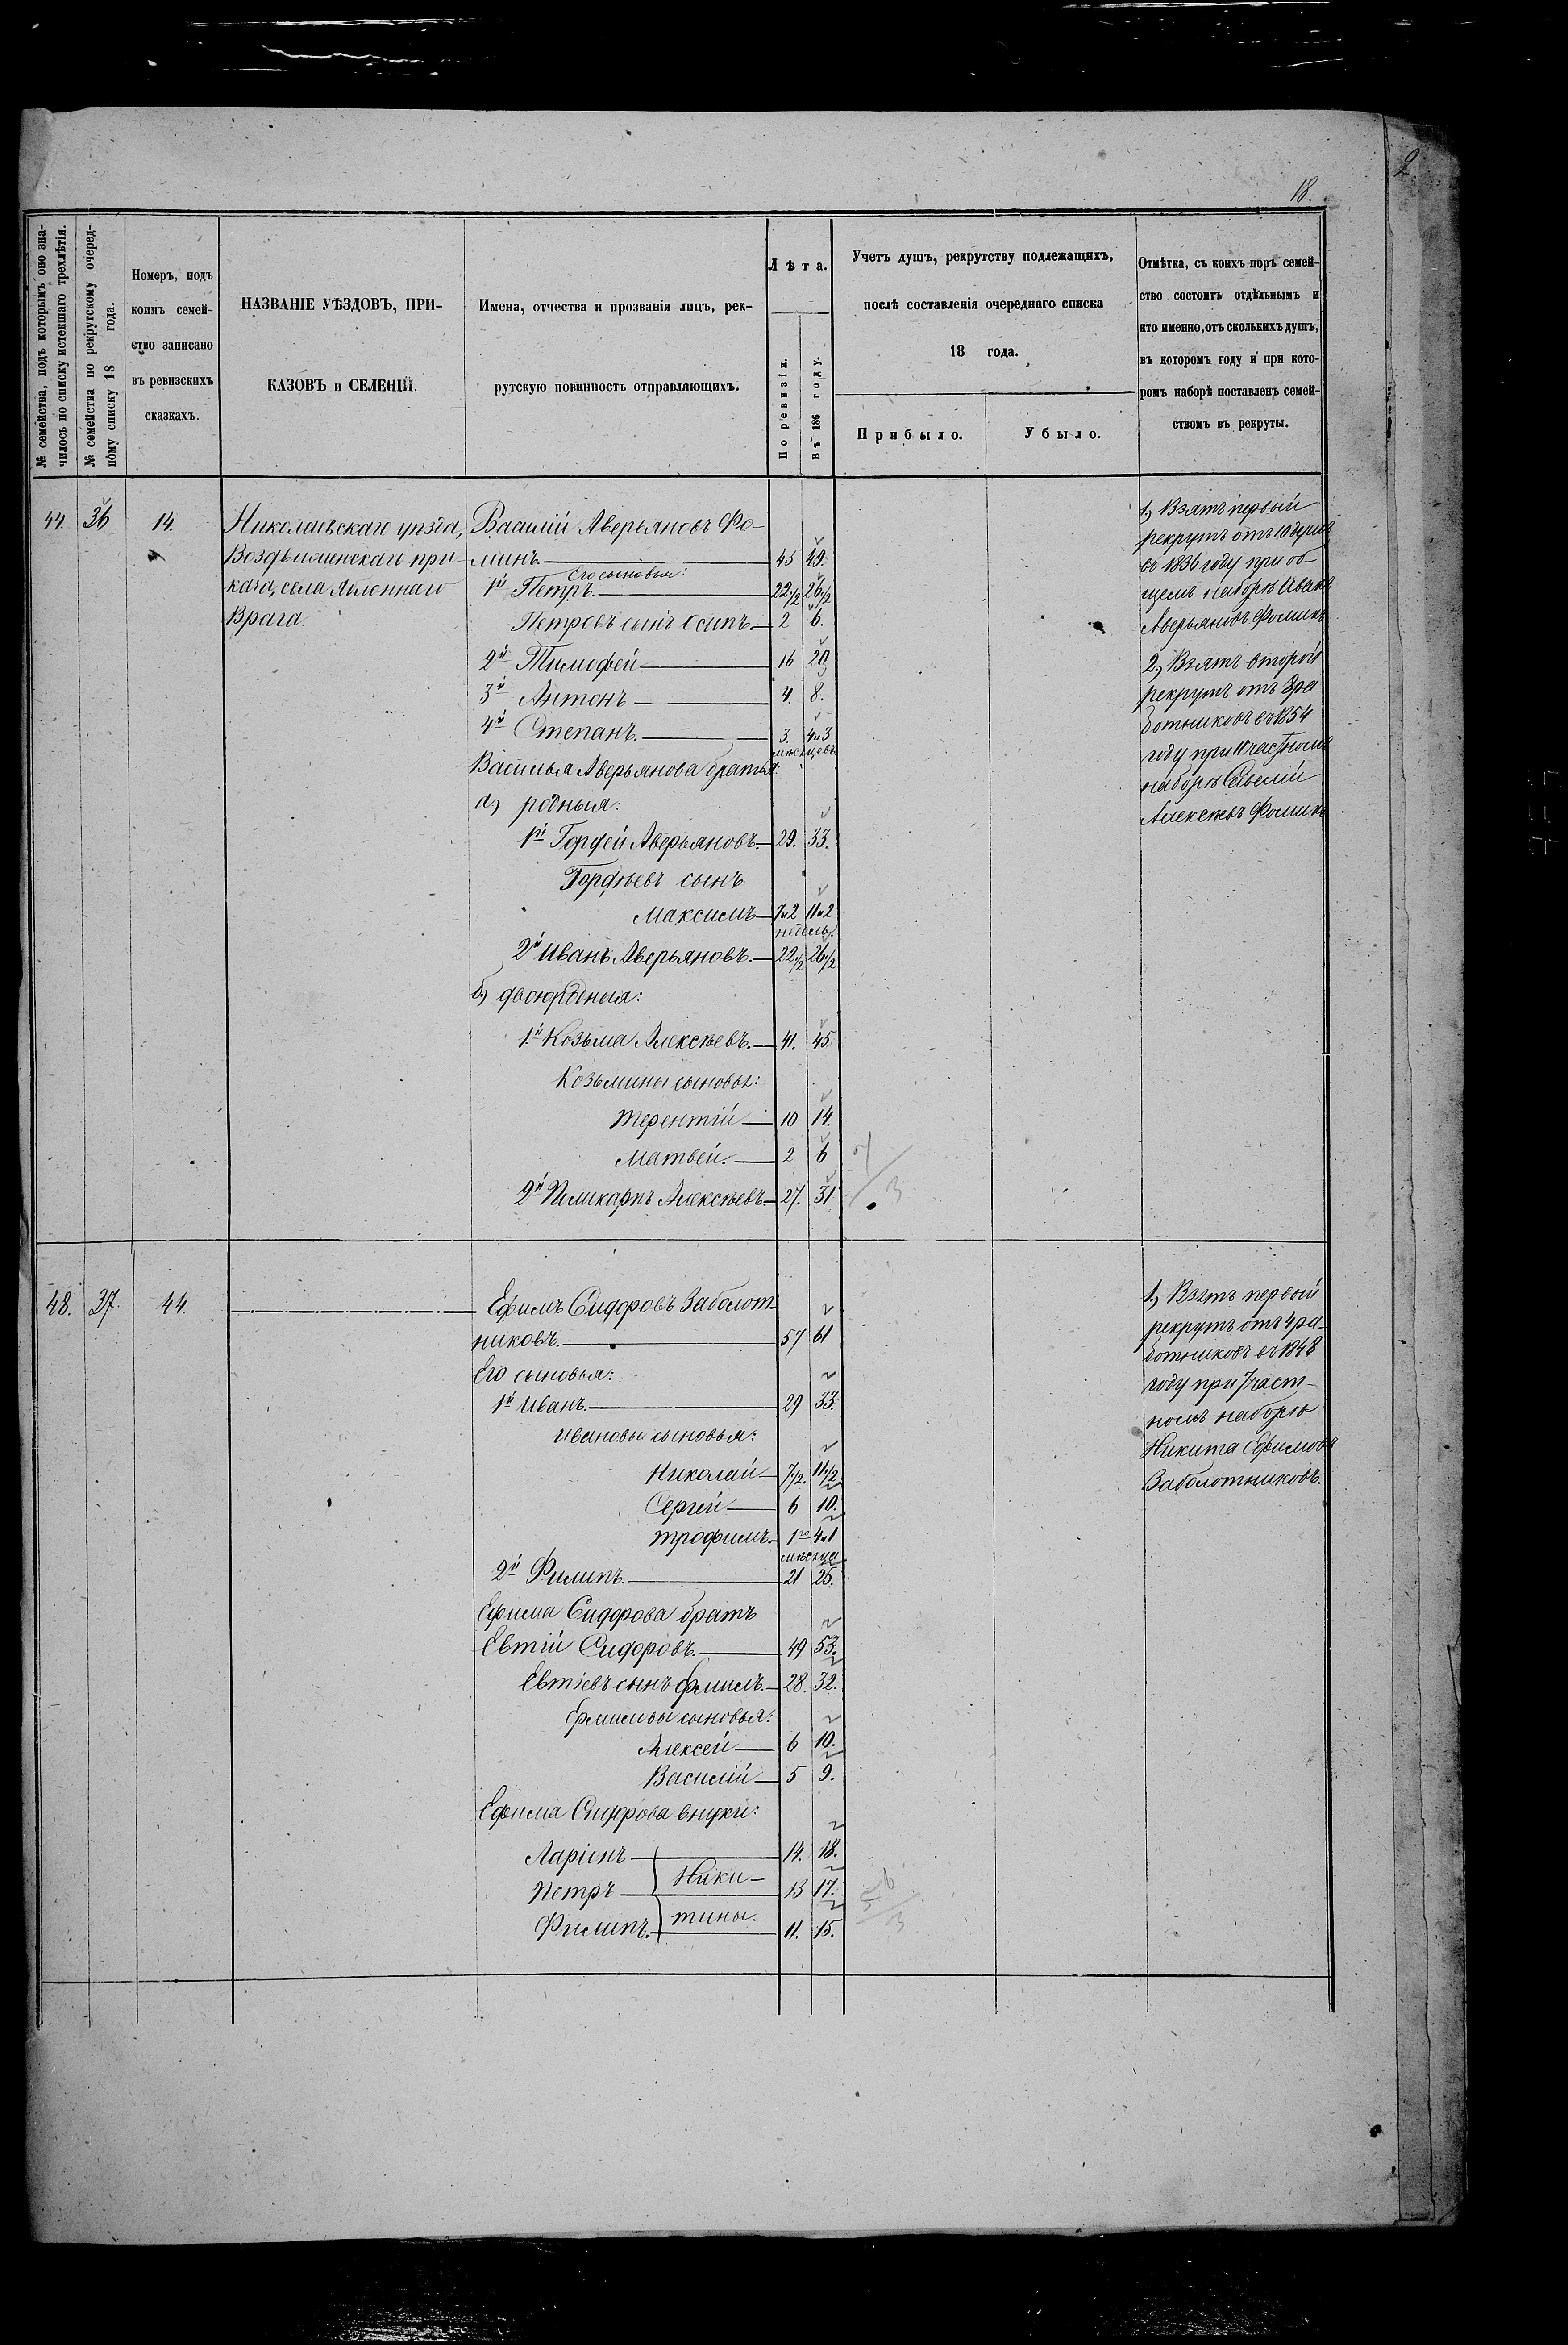 2
18.
№ семейства, подъ которымъ оно зна-
чилось по списку истекшаго трехлѣтія.
№ семейства по рекрутскому очеред-
ному списку 18 года.
Номеръ, подъ
коимъ семей-
ство записано
въ ревизскихъ
сказкахъ.
НАЗВАНІЕ УѢЗДОВЪ, ПРИ-
КАЗОВЪ и СЕЛЕНІЙ.
Имена, отчества и прозванія лицъ, рек-
рутскую повинность отправляющихъ.
Лѣта.
По ревизіи.
Въ 186 году.
Учетъ душъ, рекрутству подлежащихъ,
послѣ составленія очереднаго списка
18 года.
Прибыло.
Убыло.
Отмѣтка, съ коихъ поръ семей-
ство состоитъ отдѣльнымъ и
кто именно, отъ сколькихъ душъ,
въ которомъ году и при кото-
ромъ наборѣ поставленъ семей-
ствомъ въ рекруты.
44. 36 14.
Николаевскаго уѣзда,
Воздвиженскаго при-
каза, села
Врага.
Василій Аверьяновъ Фо-
минъ. 45 49.
Его сыновья:
1й Петръ. 22 1/2 26 1/2
Петровъ сынъ Осипъ. 2 6.
2й Тимофей 16 20
3й Антонъ 4. 8.
4й Степанъ. 3. 4 и 3
мѣсяцевъ
Василья Аверьянова братья:
а) родныя:
1й Гордей Аверьяновъ. 29. 33.
Гордѣевъ сынъ
Максимъ 7 и 2 11 и 2
недѣль.
2й Иванъ Аверьяновъ. 22 1/2 26 1/2
б) двоюродныя:
1й Козьма Алексѣевъ. 41. 45
Козьмины сыновья:
Терентій 10 14.
Матвей. 2 6
2й Поликарпъ Алексѣевъ. 27. 31
7/3
1, Взятъ первый
рекрутъ отъ 10 душъ
въ 1836 году при об-
щемъ наборѣ Иванъ
Аверьяновъ Фоминъ
2, Взятъ второй
рекрутъ отъ 8 ра
ботниковъ въ 1854
году при 11 частномъ
наборѣ Савелій
Алексѣевъ Фоминъ
48. 37. 44.
Ефимъ Сидоровъ Заболот-
никовъ. 57 61
Его сыновья:
1й Иванъ. 29 33.
Ивановы сыновья:
Николай 7 1/2. 11 1/2
Сергей 6 10.
Трофимъ. 1го 4 и 1
мѣсяца
2й Филипъ. 21 25.
Ефима Сидорова братъ
Евтій Сидоровъ. 49 53.
Евтіевъ сынъ Ермилъ. 28. 32.
Ермиловы сыновья:
Алексей 6 10.
Василій 5 9.
Ефима Сидорова внуки:
Ларіонъ 14. 18.
Петръ Ники- 13 17.
Филипъ. тины. 11. 15.
1, Взятъ первый
рекрутъ отъ 4 ра-
ботниковъ въ 1848
году при 7 част-
номъ наборѣ
Никита Ефимовъ
Заболотниковъ.